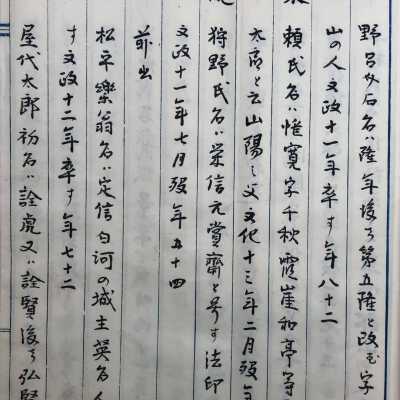 野呂介石名ハ隆年後ニ第五隆と改む字
山の人文政十一年卒す年八十二
頼氏名ハ惟寛字千秋霞崖和亭等
太亮と云山陽之父文化十三年二月歿年
狩野氏名ハ栄信元賞齋と号す法印
文政十一年七月歿年五十四
前出
松平樂翁名ハ定信白河の城主英名
す文政十二年卒す年七十二
屋代太郎初名ハ詮虎又ハ詮賢後ニ弘賢